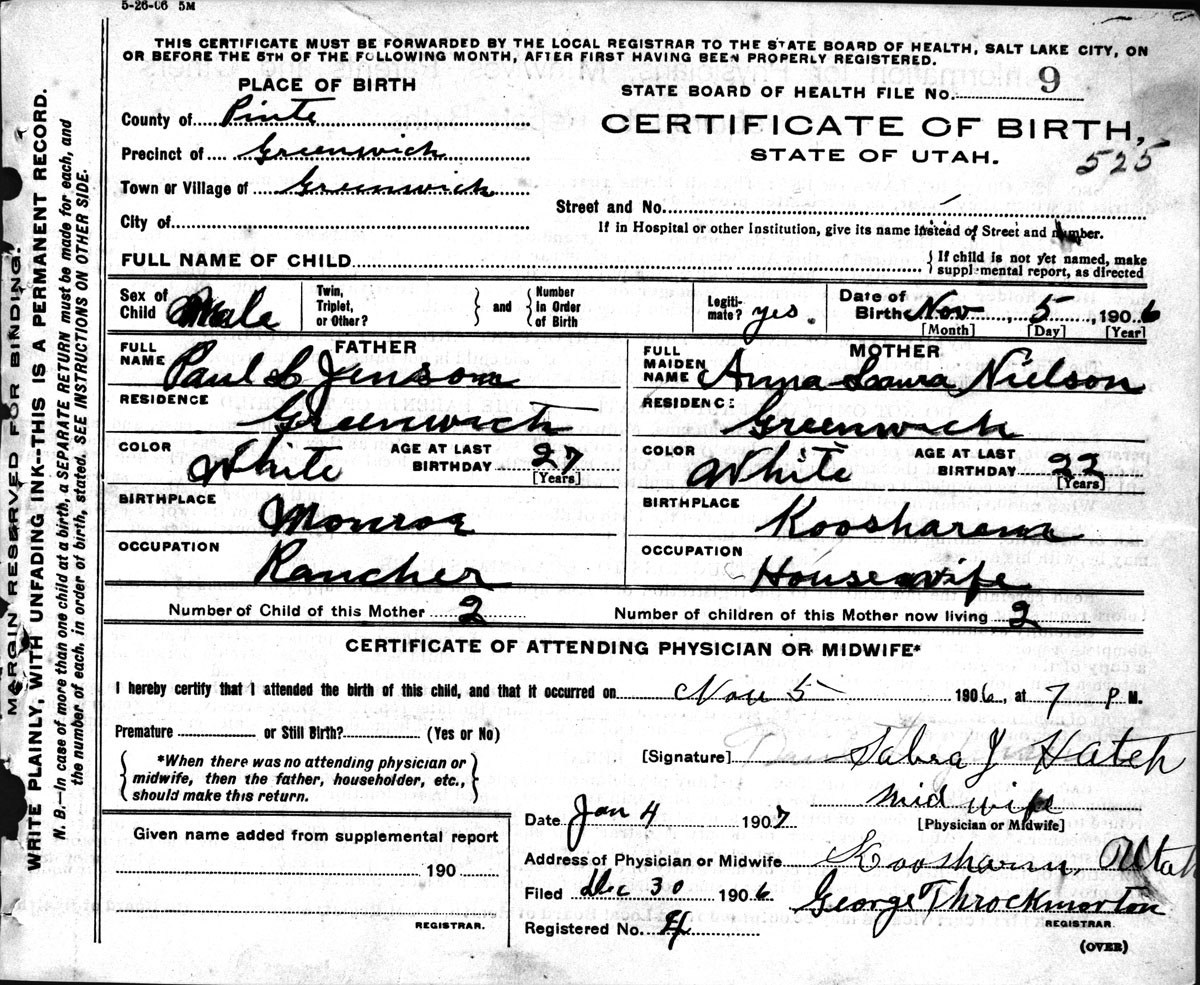 5-26-06 5M
THIS CERTIFICATE MUST BE FORWARDED BY THE LOCAL REGISTRAR TO THE STATE BOARD OF HEALTH, SALT LAKE CITY, ON
OR BEFORE THE 5TH OF THE FOLLOWING MONTH, AFTER FIRST HAVING BEEN PROPERLY REGISTERED.
PLACE OF BIRTH
STATE BOARD OF HEALTH FILE No. 9
County of Piute
CERTIFICATE OF BIRTH,
Precinct of Greenwich
STATE OF UTAH.
525
Town or Village of Greenwich
Street and No.
City of
If in Hospital or other Institution, give its name instead of Street and number.
FULL NAME OF CHILD
{ If child is not yet named, make
supplemental report, as directed
Sex of Child Male
Twin, Triplet, or Other? } and { Number In Order of Birth
Legitimate? yes.
Date of Birth Nov 5, 1906
[Month] [Day] [Year]
FATHER
FULL NAME Paul L Jenson
RESIDENCE Greenwich
COLOR White AGE AT LAST BIRTHDAY 27
[Years]
BIRTHPLACE Monroe
OCCUPATION Rancher
MOTHER
FULL MAIDEN NAME Anna Laura Nielson
RESIDENCE Greenwich
COLOR White AGE AT LAST BIRTHDAY 22
[Years]
BIRTHPLACE Koosharema
OCCUPATION Housewife
Number of Child of this Mother 2 Number of children of this Mother now living 2
CERTIFICATE OF ATTENDING PHYSICIAN OR MIDWIFE*
I hereby certify that I attended the birth of this child, and that it occurred on Nov 5 1906, at 7 P M.
Premature or Still Birth? (Yes or No)
*When there was no attending physician or
midwife, then the father, householder, etc.,
should make this return.
[Signature] Sabra J Hatch
Mid wife
[Physician or Midwife]
Date Jan 4 1907
Address of Physician or Midwife Koosharm Utah
Filed Dec 30 1906 George Throckmorton
REGISTRAR.
Registered No. 4
(OVER)
Given name added from supplemental report
190
REGISTRAR.
MARGIN RESERVED FOR BINDING.
WRITE PLAINLY, WITH UNFADING INK--THIS IS A PERMANENT RECORD.
N. B.—In case of more than one child at a birth, a SEPARATE RETURN must be made for each, and
the number of each, in order of birth, stated. SEE INSTRUCTIONS ON OTHER SIDE.